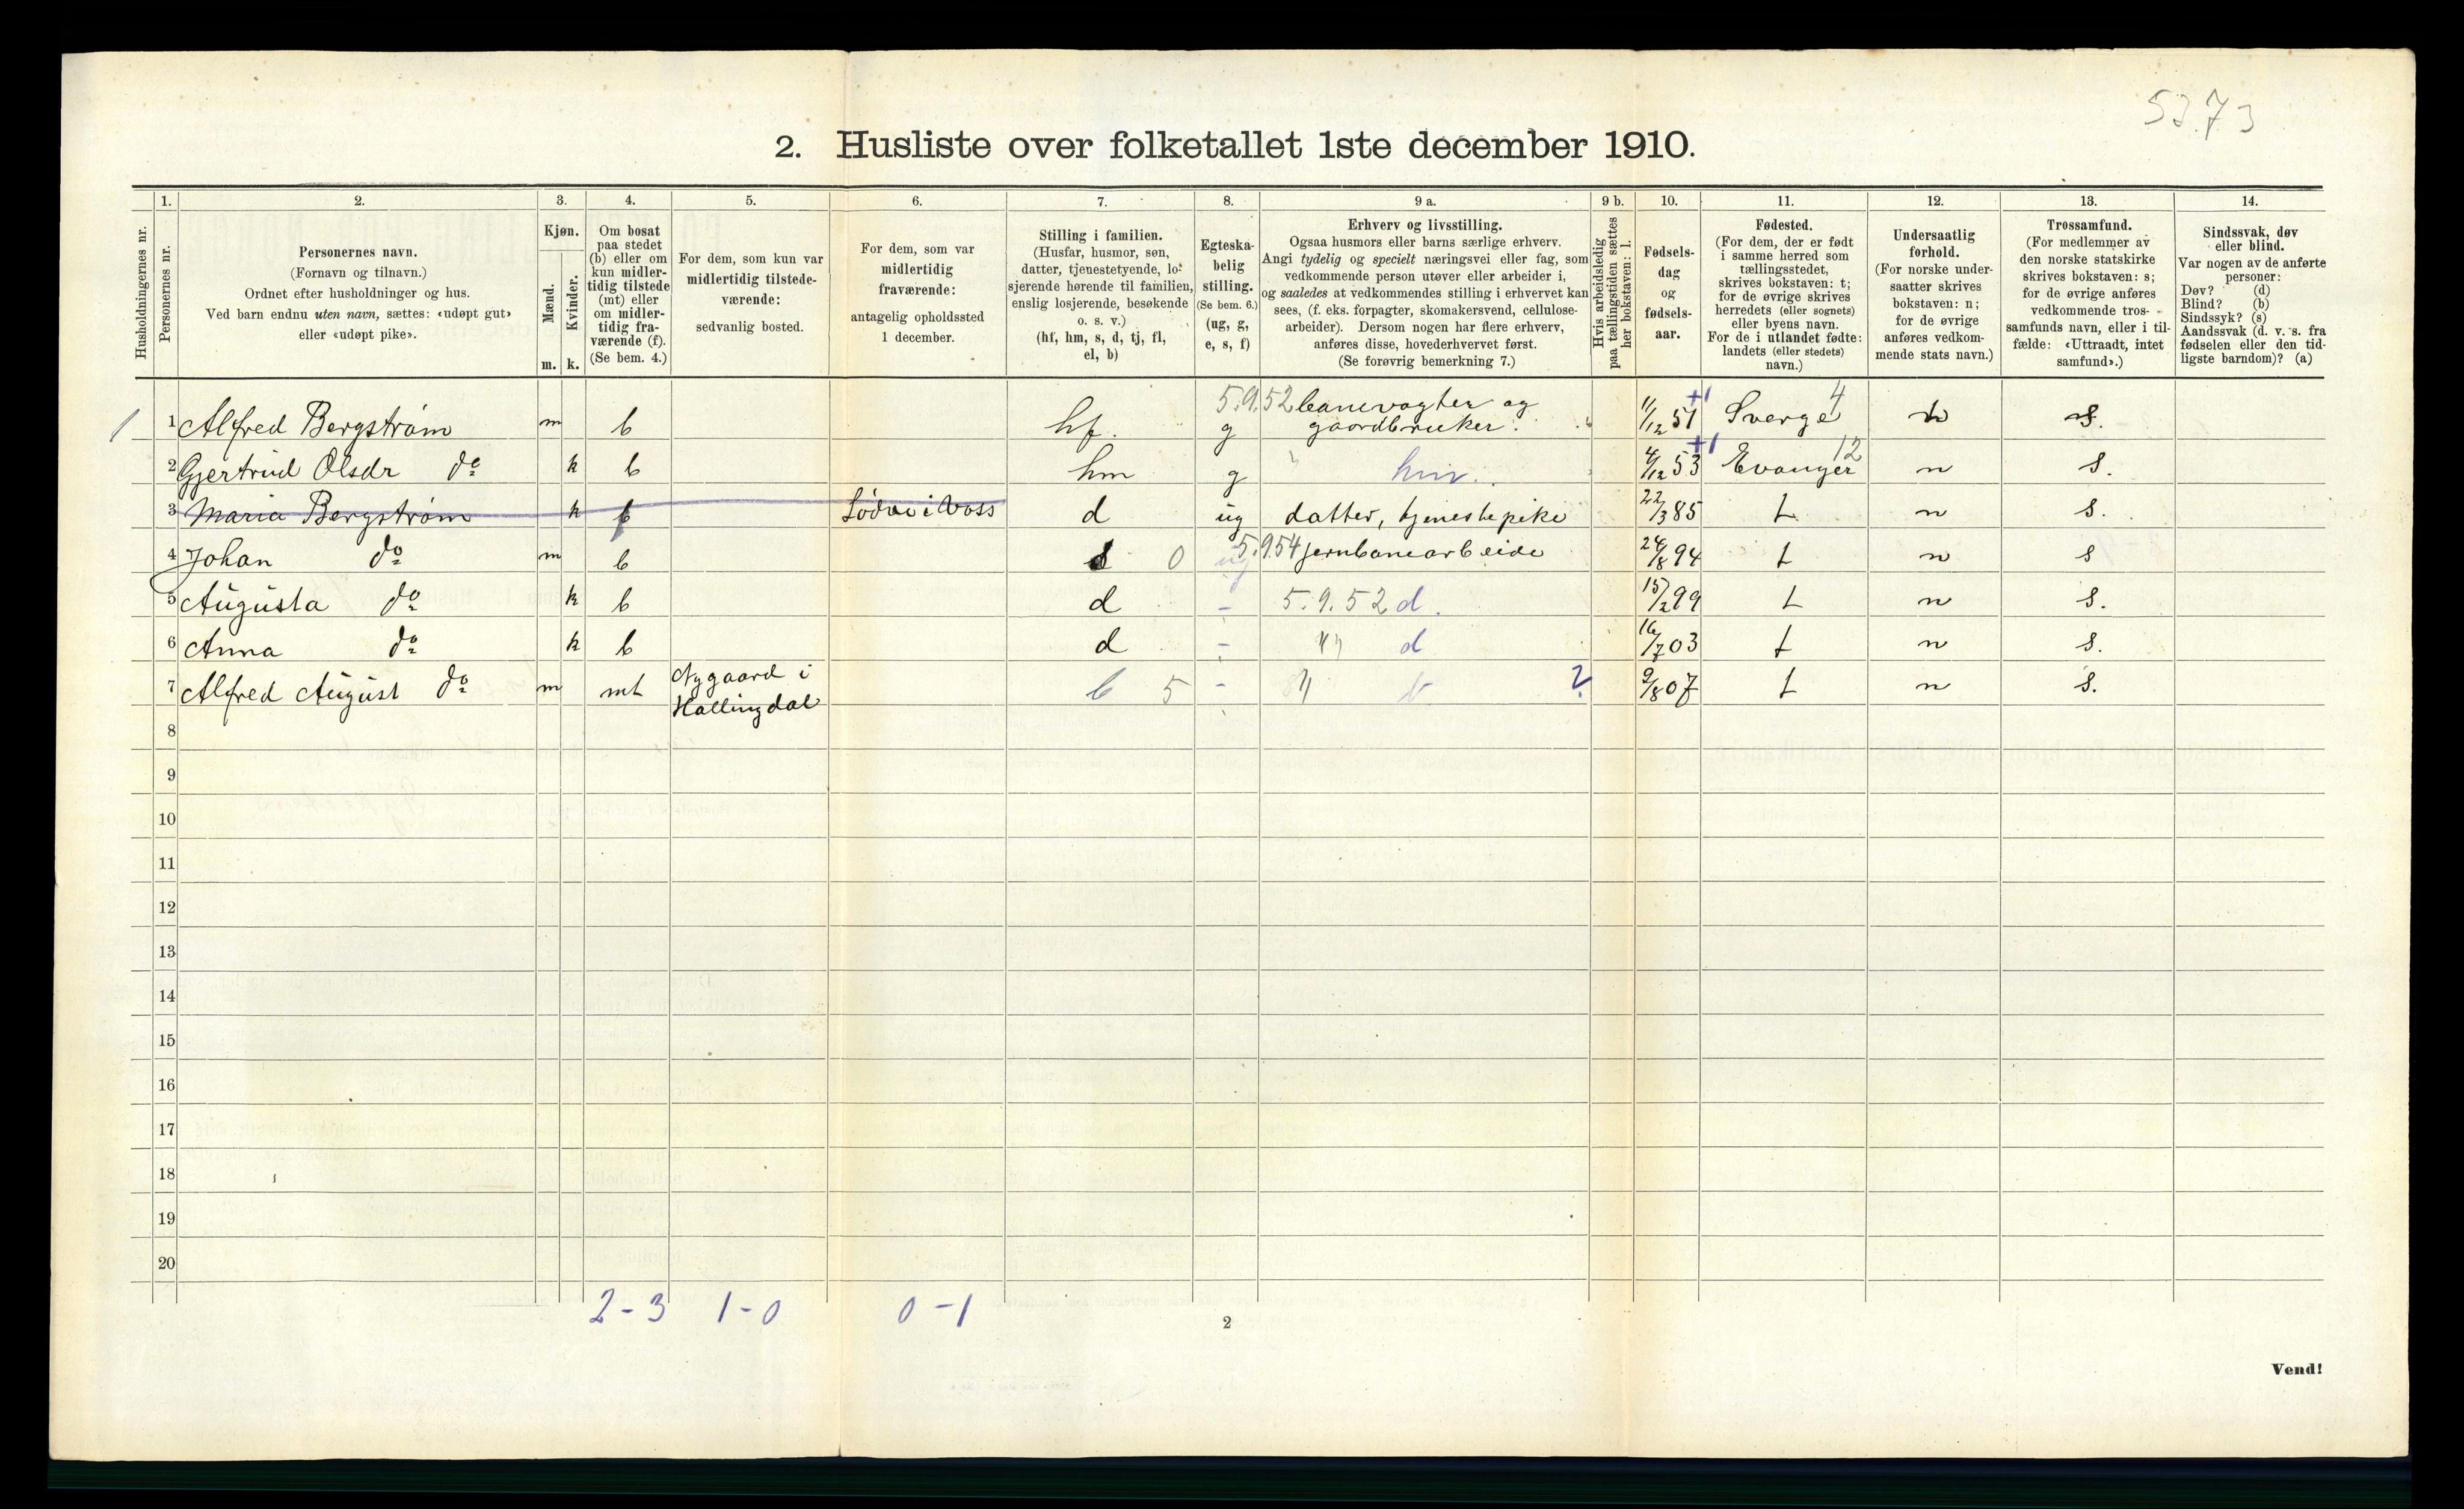 53.73
2. Husliste over folketallet 1ste december 1910.
Husholdningernes nr.
1.
Personernes nr.
2.
Personernes navn.
(Fornavn og tilnavn.)
Ordnet efter husholdninger og hus.
Ved barn endnu uten navn, sættes: «udøpt gut»
eller «udøpt pike».
3.
Kjøn.
Mænd.
Kvinder.
m. k.
4.
Om bosat
paa stedet
(b) eller om
kun midler-
tidig tilstede
(mt) eller
om midler-
tidig fra-
værende (f).
(Se bem. 4.)
5.
For dem, som kun var
midlertidig tilstede-
værende:
sedvanlig bosted.
6.
For dem, som var
midlertidig
fraværende:
antagelig opholdssted
1 december.
7.
Stilling i familien.
(Husfar, husmor, søn,
datter, tjenestetyende, lo-
sjerende hørende til familien,
enslig losjerende, besøkende
o. s. v.)
(hf, hm, s, d, tj, fl,
el, b)
8.
Egteska-
belig
stilling.
(Se bem. 6.)
(ug, g,
e, s, f)
9 a.
Erhverv og livsstilling.
Ogsaa husmors eller barns særlige erhverv.
Angi tydelig og specielt næringsvei eller fag, som
vedkommende person utøver eller arbeider i,
og saaledes at vedkommendes stilling i erhvervet kan
sees, (f. eks. forpagter, skomakersvend, cellulose-
arbeider). Dersom nogen har flere erhverv,
anføres disse, hovederhvervet først.
(Se forøvrig bemerkning 7.)
9 b.
Hvis arbeidsledig
paa tællingstiden sættes
her bokstaven: l.
10.
Fødsels-
dag
og
fødsels-
aar.
11.
Fødested.
(For dem, der er født
i samme herred som
tællingsstedet,
skrives bokstaven: t;
for de øvrige skrives
herredets (eller sognets)
eller byens navn.
For de i utlandet fødte:
landets (eller stedets)
navn.)
12.
Undersaatlig
forhold.
(For norske under-
saatter skrives
bokstaven: n;
for de øvrige
anføres vedkom-
mende stats navn.)
13.
Trossamfund.
(For medlemmer av
den norske statskirke
skrives bokstaven: s;
for de øvrige anføres
vedkommende tros-
samfunds navn, eller i til-
fælde: «Uttraadt, intet
samfund».)
14.
Sindssvak, døv
eller blind.
Var nogen av de anførte
personer:
Døv? (d)
Blind? (b)
Sindssyk? (s)
Aandssvak (d. v. s. fra
fødselen eller den tid-
ligste barndom)? (a)
5.9.52 banevogter og +1 4
1 1 Alfred Bergstrøm m b hf. g gaardbruker. 11/12 51 Sverge n s.
+1 12
2 Gjertrud Olsdr do k b hm g hm. 4/12 53 Evanger n s.
3 Maria Bergstrøm k f i Voss d ug datter, tjenestepike 22/3 85 t n s.
4 Johan do m b s 0 ug 5.9.54 jernbanearbeide 24/8 94 t n s
5 Augusta do k b d - 5.9.52 d. 15/2 99 t n s.
6 Anna do k b d - " d 16/7 03 t n s.
7 Alfred August do m mt Nygaard i
Hallingdal b 5 - " b ? 9/8 07 t n s.
8
9
10
11
12
13
14
15
16
17
18
19
20
2-3 1-0 0-1
2
Vend!